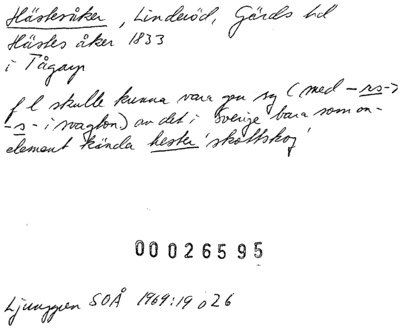 Hästesåker, Linderöd, Gärds hd
Hästes åker 1833
i Tågarp
f l skulle kunna vara gen sg (med -rs->
-s- i svagton) av det i Sverige bara som on-
element kända hester 'skottskog'
00026595
Ljunggren SOÅ 1969:19 o 26